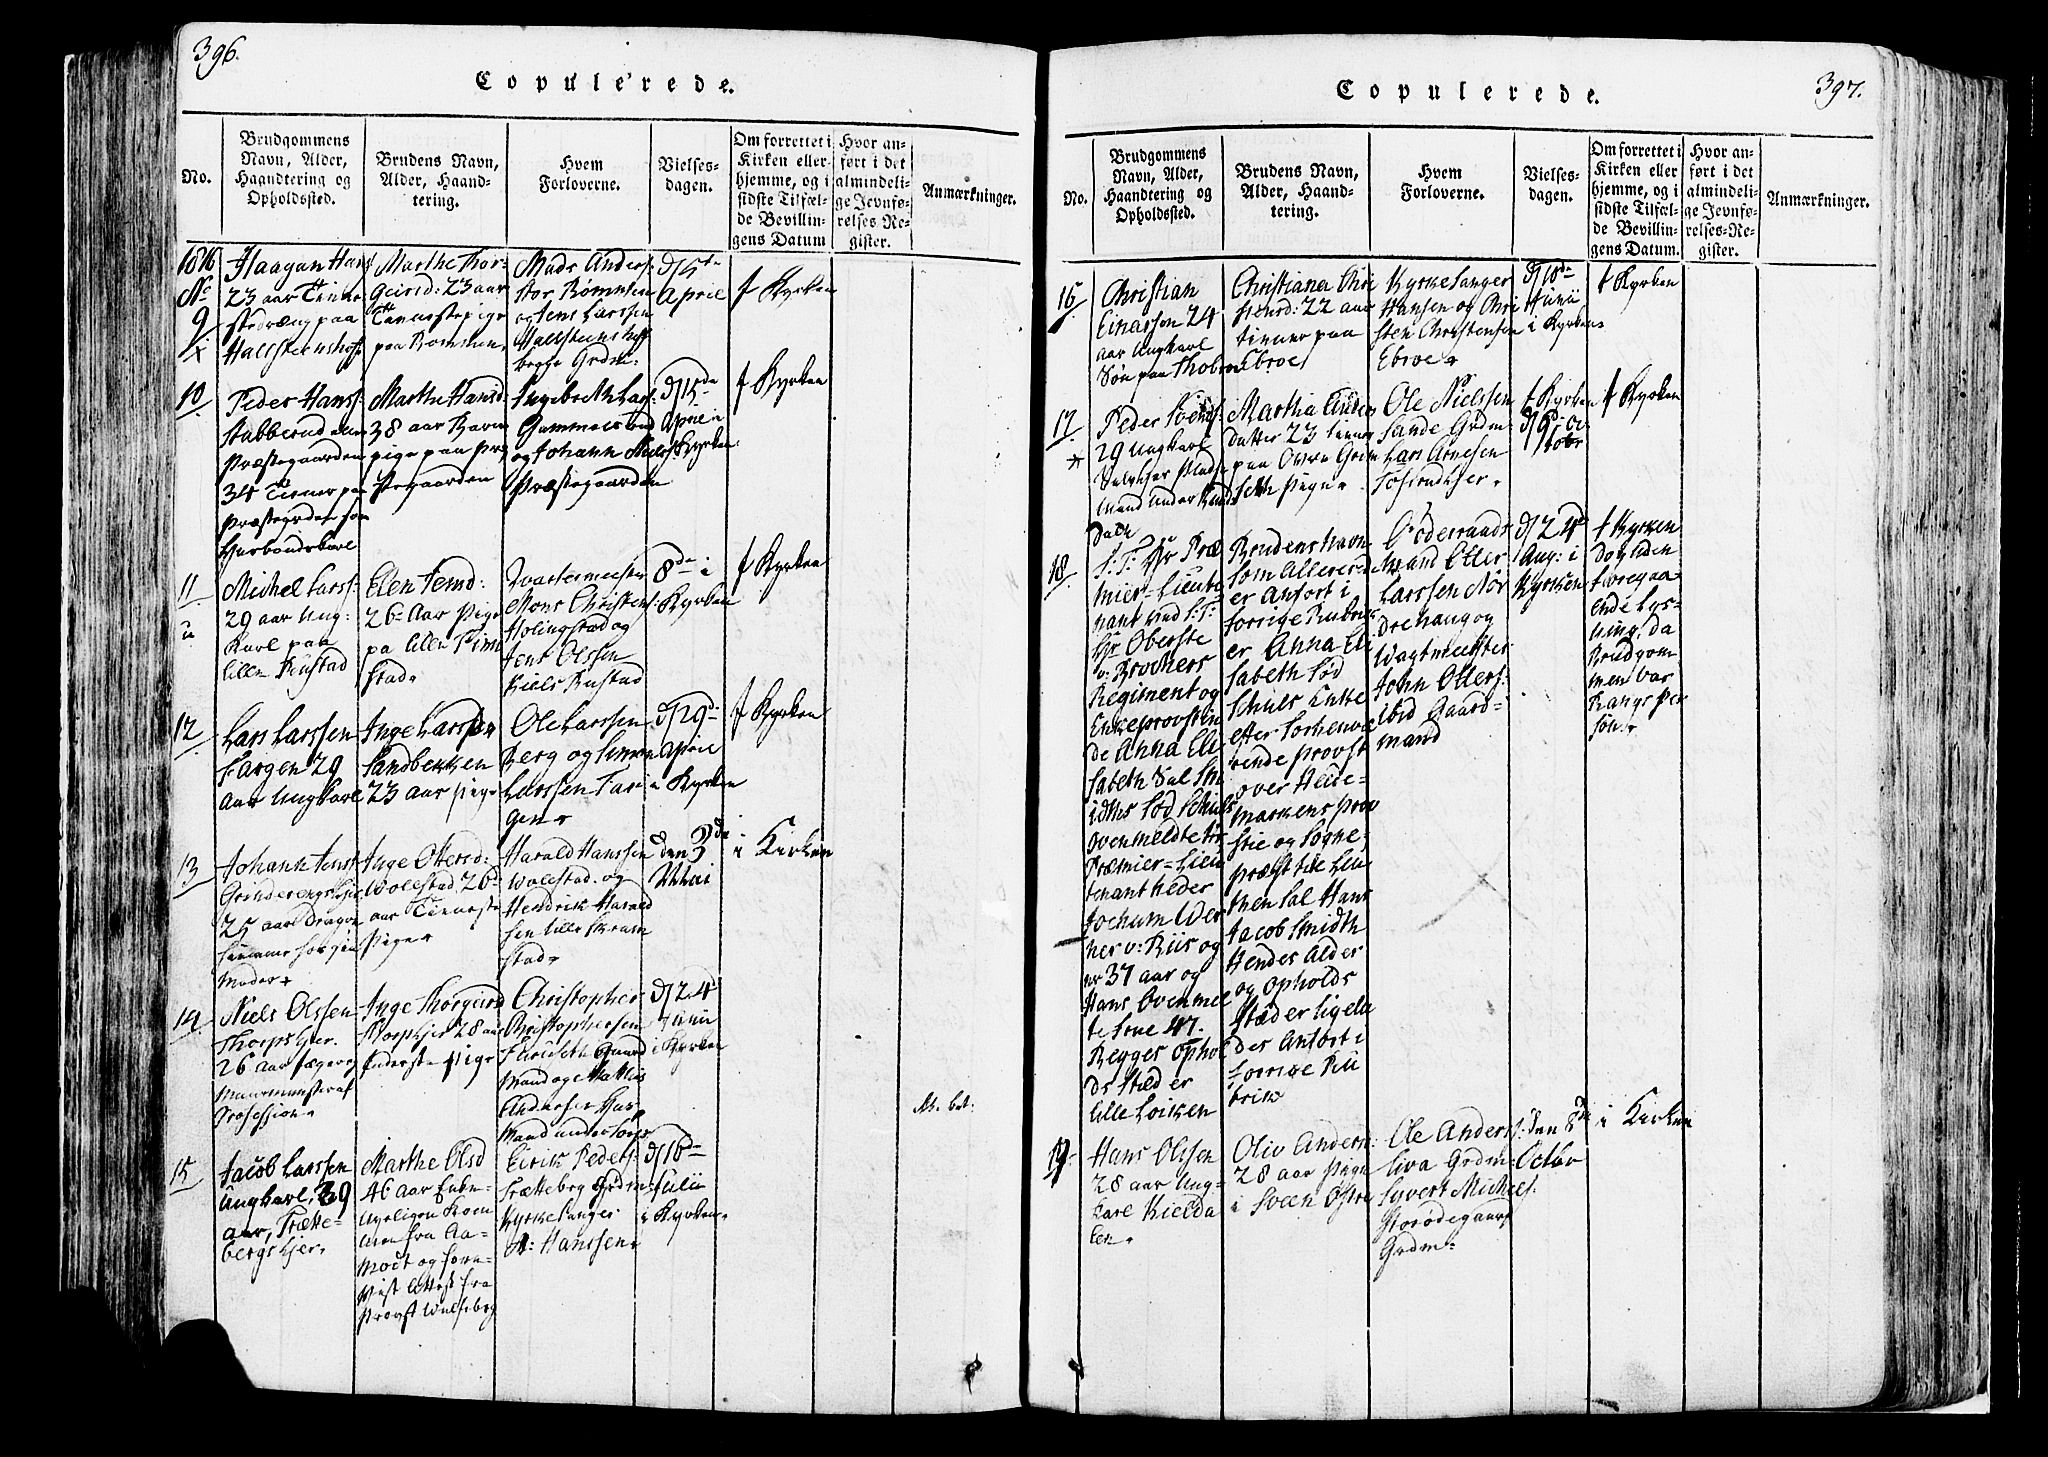 396.
Copulerede.
No.
Brudgommens
Navn, Alder,
Haandtering og
Opholdssted.
Brudens Navn,
Alder, Haand-
tering.
Hvem
Forloverne.
Vielses-
dagen.
Om forrettet i
Kirken eller
hjemme, og i
sidste Tilfæl-
de Bevillin-
gens Datum
Hvor an-
ført i det
almindeli-
ge Jevnfø-
relses-Re-
gister.
Anmærkninger.
1816
No
9
x
Haagan Hans
23 aar Tiener
paa
Marthe Thor-
23 aar
Tieneste pige
paa Rommen
Mads Anders:
og Jens Larssen
begge Grdm:
d/15de
April
i Kyrken
10
Peder Hans:
Stabberud
Præstegaarden
34 Tiener paa
Præstegrden som
Husbondskarl
Marthe Hansd
38 aar
pige paa Præ
stegaarden
Ingebreth Lars:
Gammelsrud
og Johann Niels:
Præstegaarden
d/15de
April i
Kyrken
i Kyrken
11
u
Michel Larss:
29 aar Ung-
karl paa
Lille Rustad
Elen Jensd:
26 Aar Pige
pa Lille
stad
Qvartermester
Mons Christens:
Holingstad og
Jens Olssen
Niels Rustad
8de i
Kyrken
i Kyrken
12
Lars Larssen
Fargen 29
aar Ungkarl
Inge Larssen
Sandbekken
23 aar Pige
Ole Larssen
Berg og Simen
Larssen Far
gen
d/29de
April
i Kyrken
i Kyrken
13
Johann Jens:
25 aar Dragon
hiemme hos sin
Moder
Inge Ottersd:
Wolestad 26
aar Tieneste
Pige
Harald Hanssen
Wolestad og
Hendrik Harald
sen Lille Kram
stad
den 3de
Mai
i Kirken
14
Niels Olssen
Thorpskjer
26 aar Jæger og
Muurmester af
Profession
Inge Thorgiersd
Thorpskjer 28 aar
Inderste Pige
Christopher
Christophersen
Furuseth Gaard
Mand og Mathis
Andersen Huus
Mand under Torp
d/24de
Junii
i Kyrken
At. bet:
15
Jacob Larssen
Ungkarl, 39
aar, Frette-
bergskjer
Marthe Olsd
46 aar Enke
fra Aa-
modt og frem-
vist Attest fra
Provst Wulfsberg
Eirik Peders:
Fretteberg Grdm:
Kyrkesanger
A: Hanssen
d/16de
Julii
i Kyrken
397.
Copulerede.
No.
Brudgommens
Navn, Alder,
Haandtering og
Opholdssted.
Brudens Navn,
Alder, Haand-
tering.
Hvem
Forloverne.
Vielses-
dagen.
Om forrettet i
Kirken eller
hjemme, og i
sidste Tilfæl-
de Bevillin-
gens Datum.
Hvor an-
ført i det
almindeli-
ge Jevnfø-
relses-Re-
gister.
Anmærkninger.
16
Christian
Einarson 24
aar Ungkarl
Søn paa
Christiana Chri
stensd: 22 aar
tiener paa
Ebroe
Kyrkesanger
Hansen og Chri
sten Christensen
Ebroe
d/18de
Junii
i Kyrken
i Kyrken
17
x
Peder
29 Ungkarl
Mand under
Dahl
Martha Anders
datter 23 tiener
paa Øvre Grim
seth Pige
Ole Nielssen
Sande Grdm:
Lars Arnesen
i Kyrken
d/9de Oc
tobr
i Kyrken
18
S: T: Hr Præ
mier-Lieute
nant ved S: T:
Hr Oberste
v: Brochers
Regiment og
Enkeprovstin
de Anna Eli
sabeth Sal Sm
idths Fød Schuls
Ovenmeldte Hr
Præmier-Lieu
tenant heder
Jochum Wer
ner v: Riis og
er 37 aar og
Hans Ovenmel
te Frue 47.
Begges Ophol
ds Stæd er
Lille Loiken
Brudens Navn
som allerer
er anført i
forrige Rubrik
er Anna Eli
sabeth Fød
Schuls Enke
efter forhenvæ
rende Provst
over Hede-
markens Prov
stie og Sogne
præst til Leu
then Sal Hans
Jacob Smidth
Hendes Alder
og Opholds
Stæd er ligele
des Anført i
forrige Ru
brik
Goderaads
Mand Otter
Larssen Nor
drehaug og
Wagtmester
John Otters:
Lbid Gaard-
mand
d/24de
Aug: i
Kyrken
i Kyrken
dog uden
foregaa-
ende Lys-
ning, da
Brudgom
men var
Rangs Per
son
19
Hans Olssen
28 aar Ung-
karl Kielda
len
Oliv Anders:
28 aar Pige
i Sveen Østre
Ole Anderss:
Liva Grdm:
Syvert Michels:
Storødegaard
Grdm:
den 8de
Octbr
i Kirken